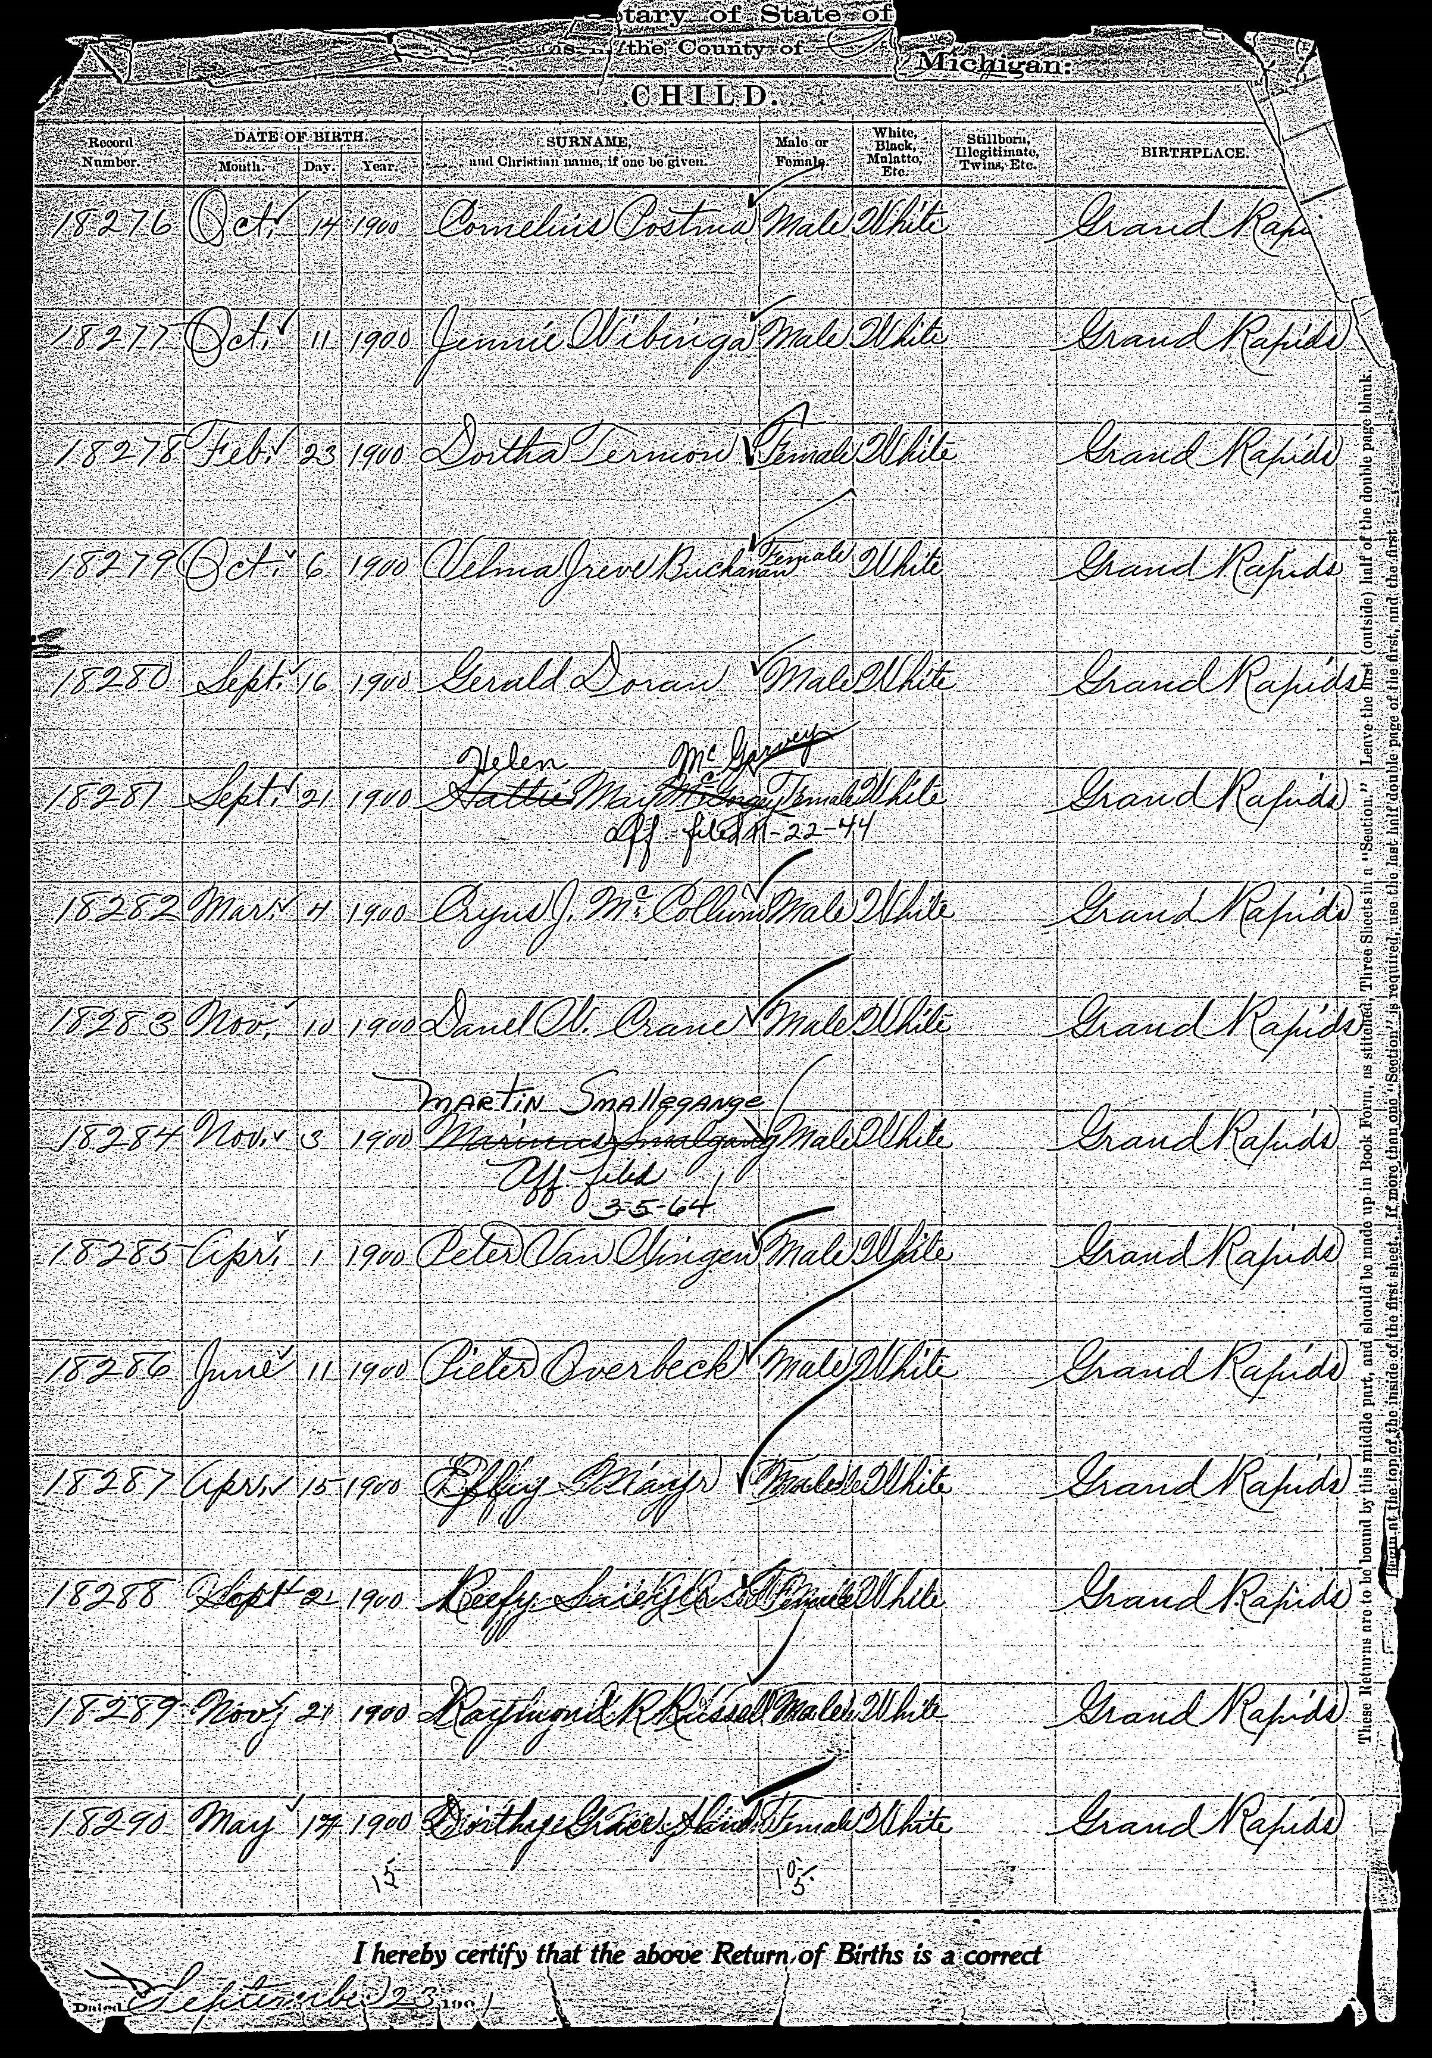 tary of State of
the County of
Michigan:
CHILD.
Record Number. DATE OF BIRTH. Month. Day. Year. SURNAME, and Christian name, if one be given. Male or Female. White, Black, Mulatto, Etc. Stillborn, Illegitimate, Twins, Etc. BIRTHPLACE.
18276 Oct. 14 1900 Cornelius Postma Male White Grand Rapi
18277 Oct. 11 1900 Jennie Wibinga Male White Grand Rapids
18278 Feb. 23 1900 Dortha Ternion Female White Grand Rapids
18279 Oct. 6 1900 Velma Ireve Buchanan Female White Grand Rapids
18280 Sept. 16 1900 Gerald Doran Male White Grand Rapids
Helen McGarvey
18281 Sept. 21 1900 Hattie May Female White Grand Rapids
Aff. filed 11-22-44
18282 Mar. 4 1900 Cryus J. Mc Collum Male White Grand Rapids
18283 Nov. 10 1900 Danel W. Crane Male White Grand Rapids
MARTIN SmAllegANge
18284 Nov. 3 1900 Marinus Smalgang Male White Grand Rapids
Aff. filed
3-5-64
18285 Apr. 1 1900 Peter Van Vingen Male White Grand Rapids
18286 June 11 1900 Pieter Overbeck Male White Grand Rapids
18287 Apr. 15 1900 White Grand Rapids
18288 Sept 1900 Female White Grand Rapids
18289 Nov 21 1900 Raymond R Russell Male White Grand Rapids
18290 May 1900 Grace Female White Grand Rapids
15 10
5
I hereby certify that the above Return of Births is a correct
Dated September 23 1901
These Returns are to be bound by this middle part, and should be made up in Book Form, as stitched, Three Sheets in a "Section." Leave the first (outside) half of the double page blank.
Begin at the top of the inside of the first sheet. If more than one "Section" is required, use the last half double page of the first, and the first